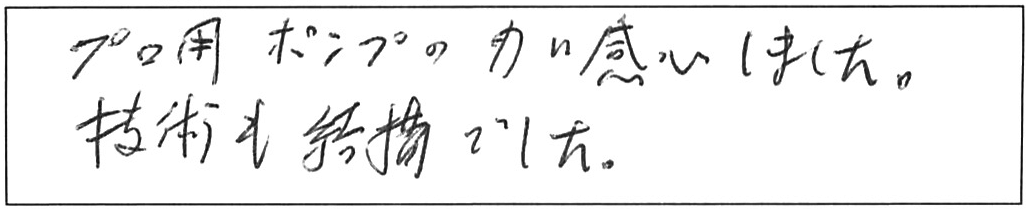 プロ用ポンプの力に感心しました。
技術も結構でした。